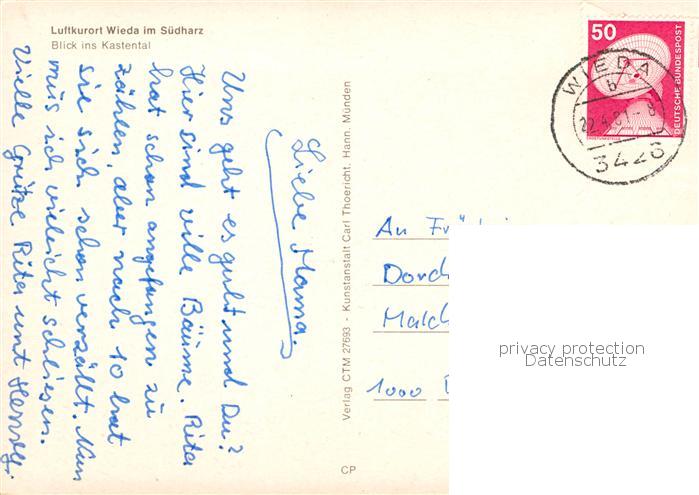 Luftkurort Wieda im Südharz
Blick ins Kastental
Liebe Mama.
Uns geht es gut und Du?
Hier sind ville Bäume. Rita
hat schon angefangen zu
zählen, aber nach 10 hat
sie sich schon verzällt. Nun
mus ich vieleicht schliesen.
Vielle Grüze Rita unt
Verlag CTM 27693 - Kunstanstalt Carl Thoericht, Hann. Münden
CP
50
DEUTSCHE BUNDESPOST
WIEDA
b
22.4.81 - 8
3426
An
1000
privacy protection
Datenschutz